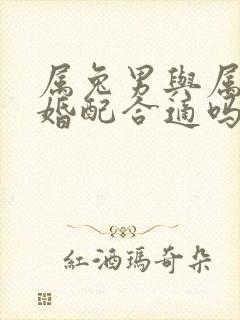 属兔男與属
婚配合適吗
紅酒瑪奇朵